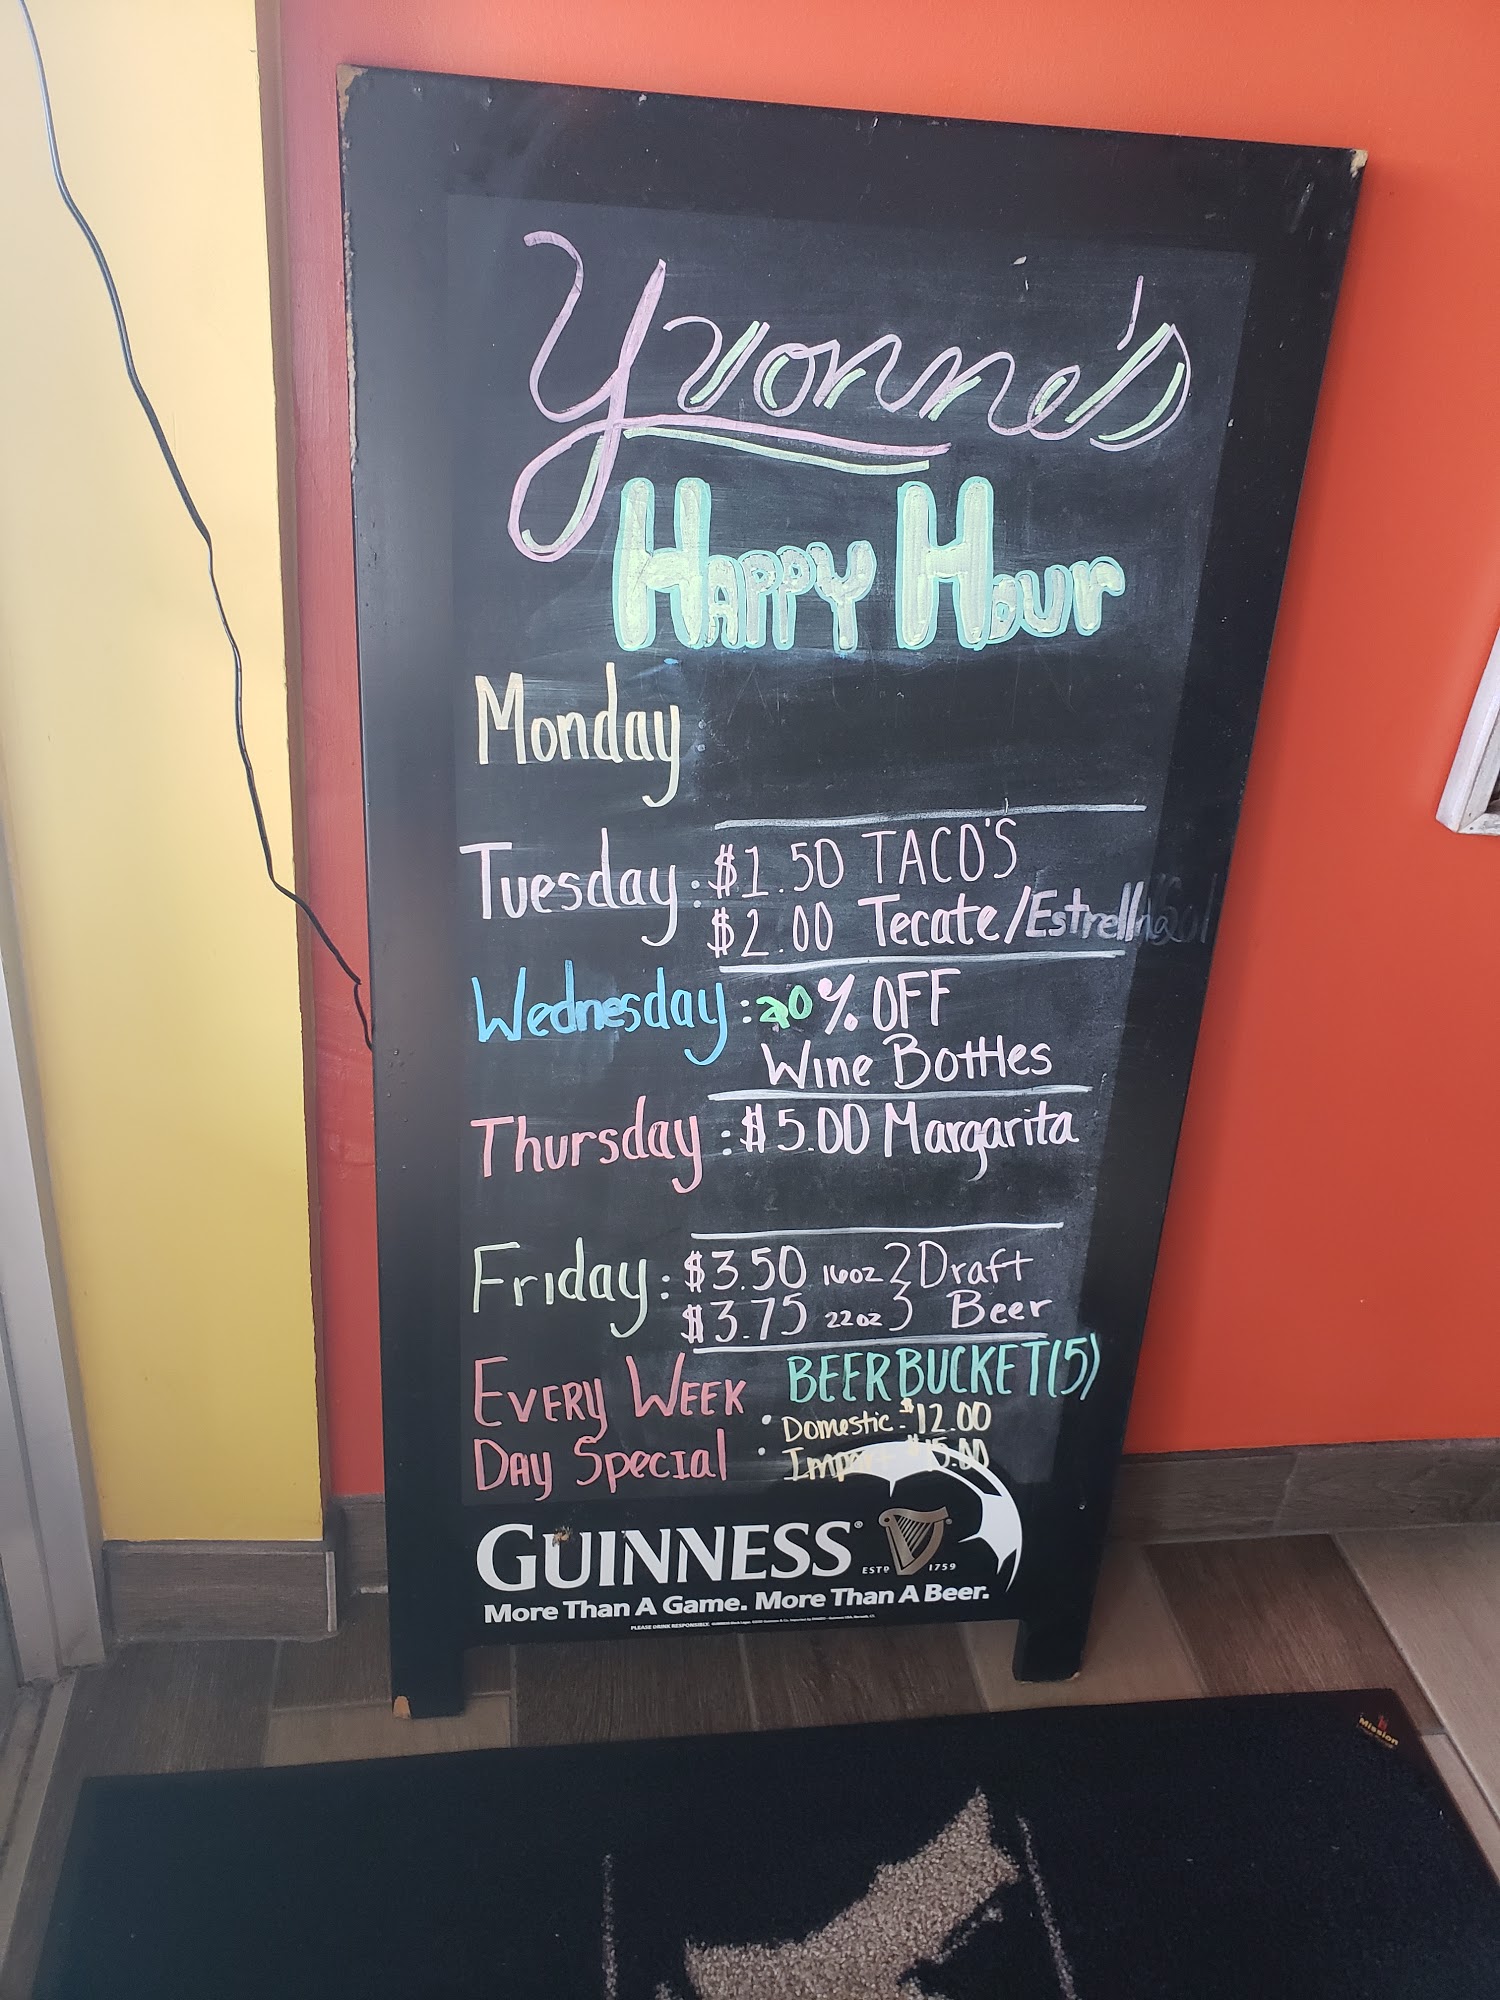 Yvonne's
HAPPY HOUR
Monday
Tuesday: $1.50 TACO'S
$2.00 Tecate/Estrella
Wednesday: 20% OFF
Wine Bottles
Thursday: $5.00 Margarita
Friday: $3.50 16oz } Draft
$3.75 22oz } Beer
EVERY WEEK BEER BUCKET (5)
DAY SPECIAL : Domestic - $12.00
Import $15.00
GUINNESS®
ESTD 1759
More Than A Game. More Than A Beer.
PLEASE DRINK RESPONSIBLY.
Mission